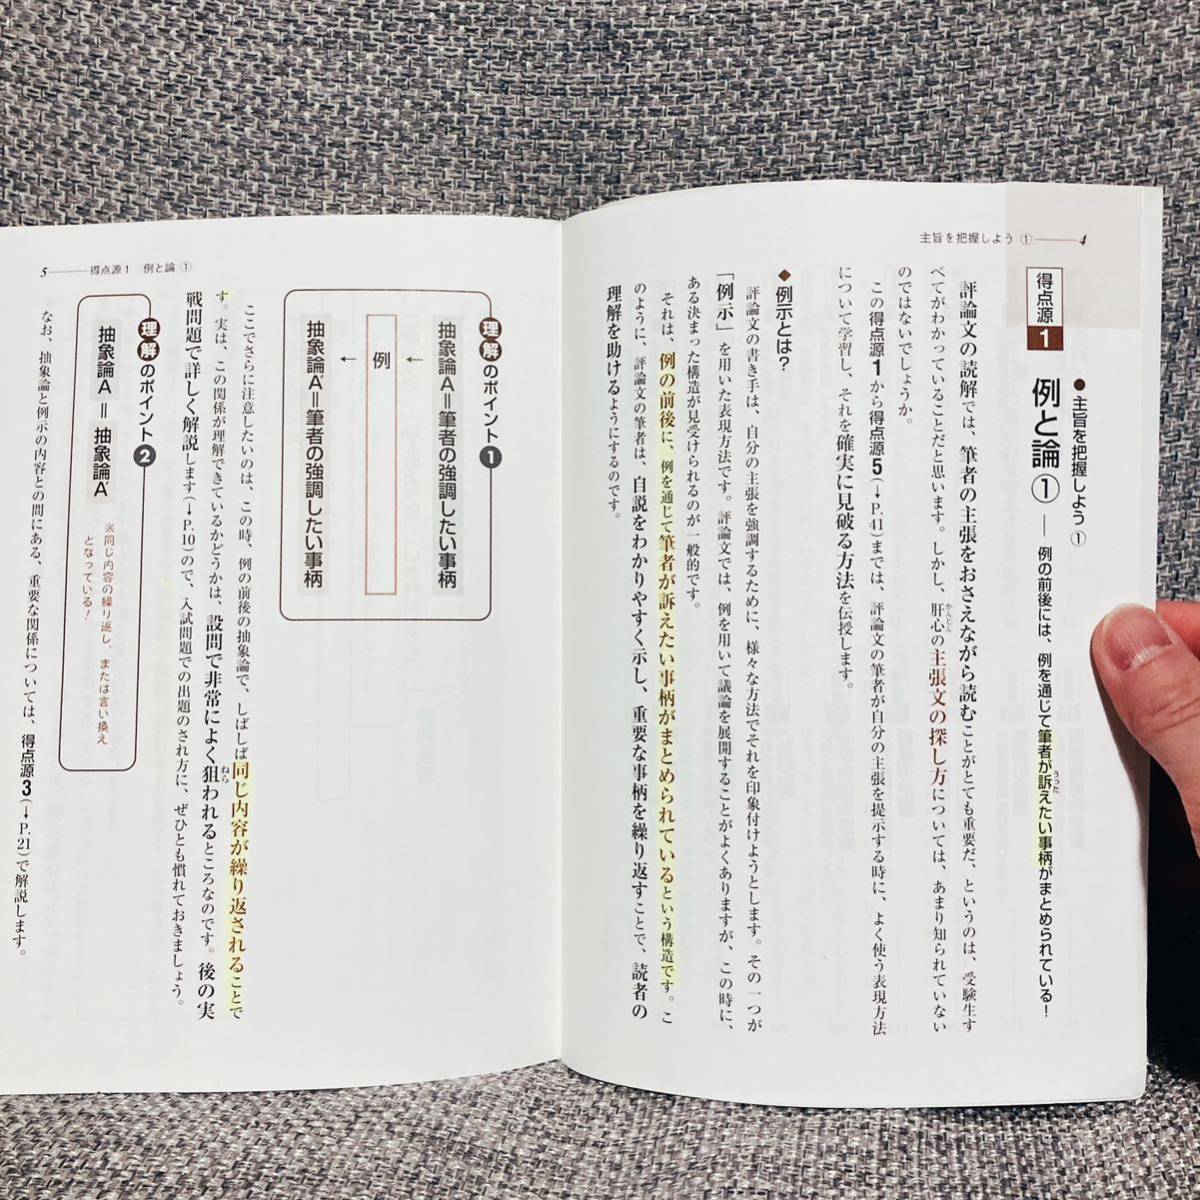 主旨を把握しよう ① 4
得点源 1
●主旨を把握しよう①
例と論① ― 例の前後には、例を通じて筆者が訴えたい事柄がまとめられている！
うった
評論文の読解では、筆者の主張をおさえながら読むことがとても重要だ、というのは、受験生す
べてがわかっていることだと思います。しかし、肝心の主張文の探し方については、あまり知られていない
かんじん
のではないでしょうか。
この得点源1から得点源5（→P.41）までは、評論文の筆者が自分の主張を提示する時に、よく使う表現方法
について学習し、それを確実に見破る方法を伝授します。
◆例示とは？
評論文の書き手は、自分の主張を強調するために、様々な方法でそれを印象付けようとします。その一つが
「例示」を用いた表現方法です。評論文では、例を用いて議論を展開することがよくありますが、この時に、
ある決まった構造が見受けられるのが一般的です。
それは、例の前後に、例を通じて筆者が訴えたい事柄がまとめられているという構造です。こ
のように、評論文の筆者は、自説をわかりやすく示し、重要な事柄を繰り返すことで、読者の
理解を助けるようにするのです。
5 得点源1 例と論 ①
理解のポイント1
抽象論A＝筆者の強調したい事柄
↓
例
↓
抽象論A'＝筆者の強調したい事柄
ここでさらに注意したいのは、この時、例の前後の抽象論で、しばしば同じ内容が繰り返されることで
す。実は、この関係が理解できているかどうかは、設問で非常によく狙われるところなのです。後の実
ねら
戦問題で詳しく解説します（→P.10）ので、入試問題での出題のされ方に、ぜひとも慣れておきましょう。
理解のポイント2
抽象論A＝抽象論A'
※同じ内容の繰り返し、または言い換え
となっている！
なお、抽象論と例示の内容との間にある、重要な関係については、得点源3（→P.21）で解説します。